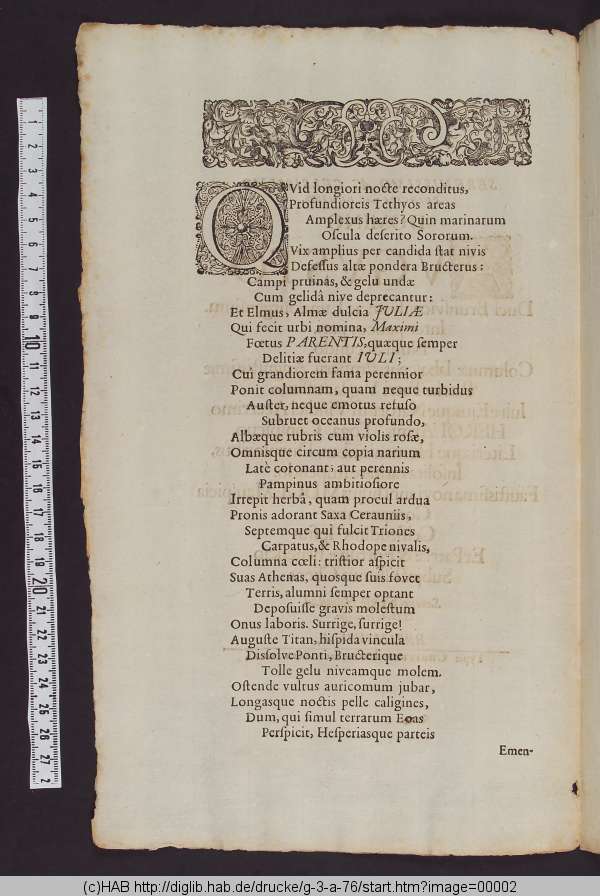 QVid longiori nocte reconditus,
Profundioreis Tethyos areas
Amplexus hæres? Quin marinarum
Oscula deserito Sororum.
Vix amplius per candida stat nivis
Defessus altæ pondera Bructerus:
Campi pruinas, & gelu undæ
Cum gelidâ nive deprecantur:
Et Elmus, Almæ dulcia JULIÆ
Qui fecit urbi nomina, Maximi
Fœtus PARENTIS, quæque semper
Delitiæ fuerant IULI;
Cui grandiorem fama perennior
Ponit columnam, quam neque turbidus
Auster, neque emotus refuso
Subruet oceanus profundo,
Albæque rubris cum violis rosæ,
Omnisque circum copia narium
Latè coronant; aut perennis
Pampinus ambitiosiore
Irrepit herbâ, quam procul ardua
Pronis adorant Saxa Cerauniis,
Septemque qui fulcit Triones
Carpatus, & Rhodope nivalis,
Columna cœli: tristior aspicit
Suas Athenas, quosque suis fovet
Terris, alumni semper optant
Deposuisse gravis molestum
Onus laboris. Surrige, surrige!
Auguste Titan, hispida vincula
Dissolve Ponti, Bructerique
Tolle gelu niveamque molem.
Ostende vultus auricomum jubar,
Longasque noctis pelle caligines,
Dum, qui simul terrarum Eoas
Perspicit, Hesperiasque parteis
Emen-
1 2 3 4 5 6 7 8 9 10 11 12 13 14 15 16 17 18 19 20 21 22 23 24 25 26 27 2
(c)HAB http://diglib.hab.de/drucke/g-3-a-76/start.htm?image=00002